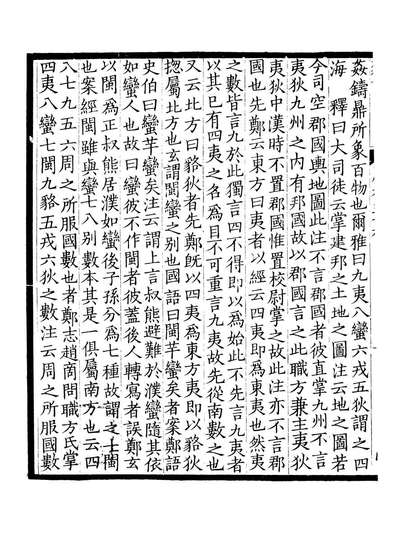 姦鑄鼎所象百物也爾雅曰九夷八蠻六戎五狄謂之四
海　釋曰大司徒云掌建邦之土地之圖注云地之圖若
今司空郡國輿地圖此注不言郡國者彼直掌九州不言
夷狄九州之內有邦國故以郡國言之此職方兼主夷狄
夷狄中漢時不置郡國惟置校尉掌之故此注亦不言郡
國也先鄭云東方曰夷者以經云四夷即為東夷也然夷
之數皆言九於此獨言四不得即以為始此不先言九夷者
以其已有四夷之名為目不可重言九夷故先從南數之也
又云北方曰貉狄者先鄭既以四夷為東方夷即以貉狄
揔屬北方也玄謂閩蠻之別也國語曰閩芉蠻矣者案鄭語
史伯曰蠻芉蠻矣注云謂上言叔熊避難於濮蠻隨其俗
如蠻人也故曰蠻彼不作閩者彼蓋後人轉寫者誤鄭玄
以閩為正叔熊居濮如蠻後子孫分為七種故謂之七閩
也案經閩雖與蠻七八別數本其是一俱屬南方也云四
八七九五六周之所服國數也者鄭志趙商問職方氏掌
四夷八蠻七閩九貉五戎六狄之數注云周之所服國數